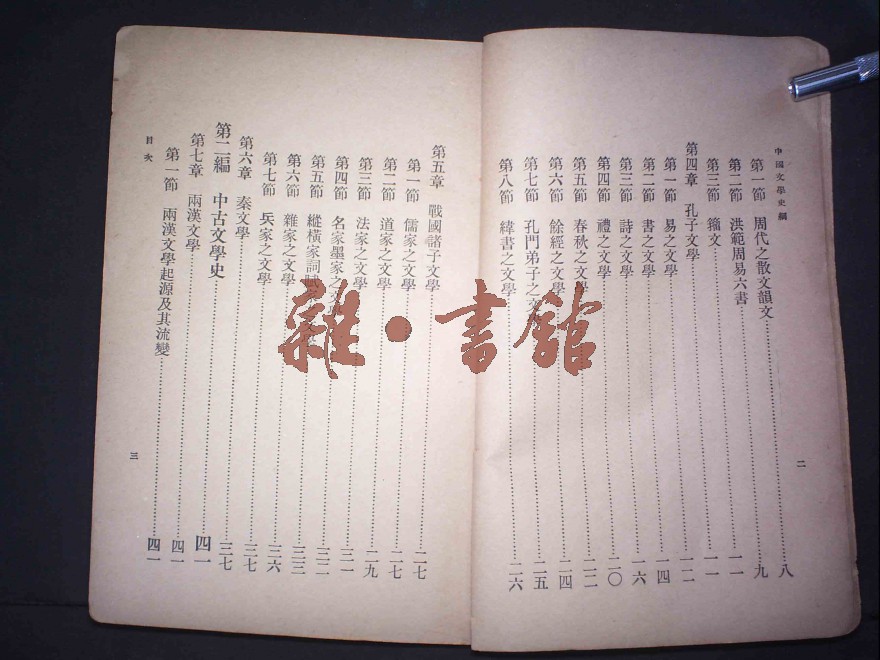 中國文學史綱
第一節 周代之散文韻文……八
第二節 洪範周易六書……九
第三節 籀文……一一
第四章 孔子文學……一一
第一節 易之文學……一二
第二節 書之文學……一四
第三節 詩之文學……一六
第四節 禮之文學……二〇
第五節 春秋之文學……二二
第六節 餘經之文學……二四
第七節 孔門弟子之文……二五
第八節 緯書之文學……二六
二
第五章 戰國諸子文學……二七
第一節 儒家之文學……二七
第二節 道家之文學……二九
第三節 法家之文學……三一
第四節 名家墨家之文……三二
第五節 縱橫家詞賦……三三
第六節 雜家之文學……三六
第七節 兵家之文學……三七
第六章 秦文學……三七
第二編 中古文學史……四一
第七章 兩漢文學……四一
第一節 兩漢文學起源及其流變……四一
目次
三
雜·書館